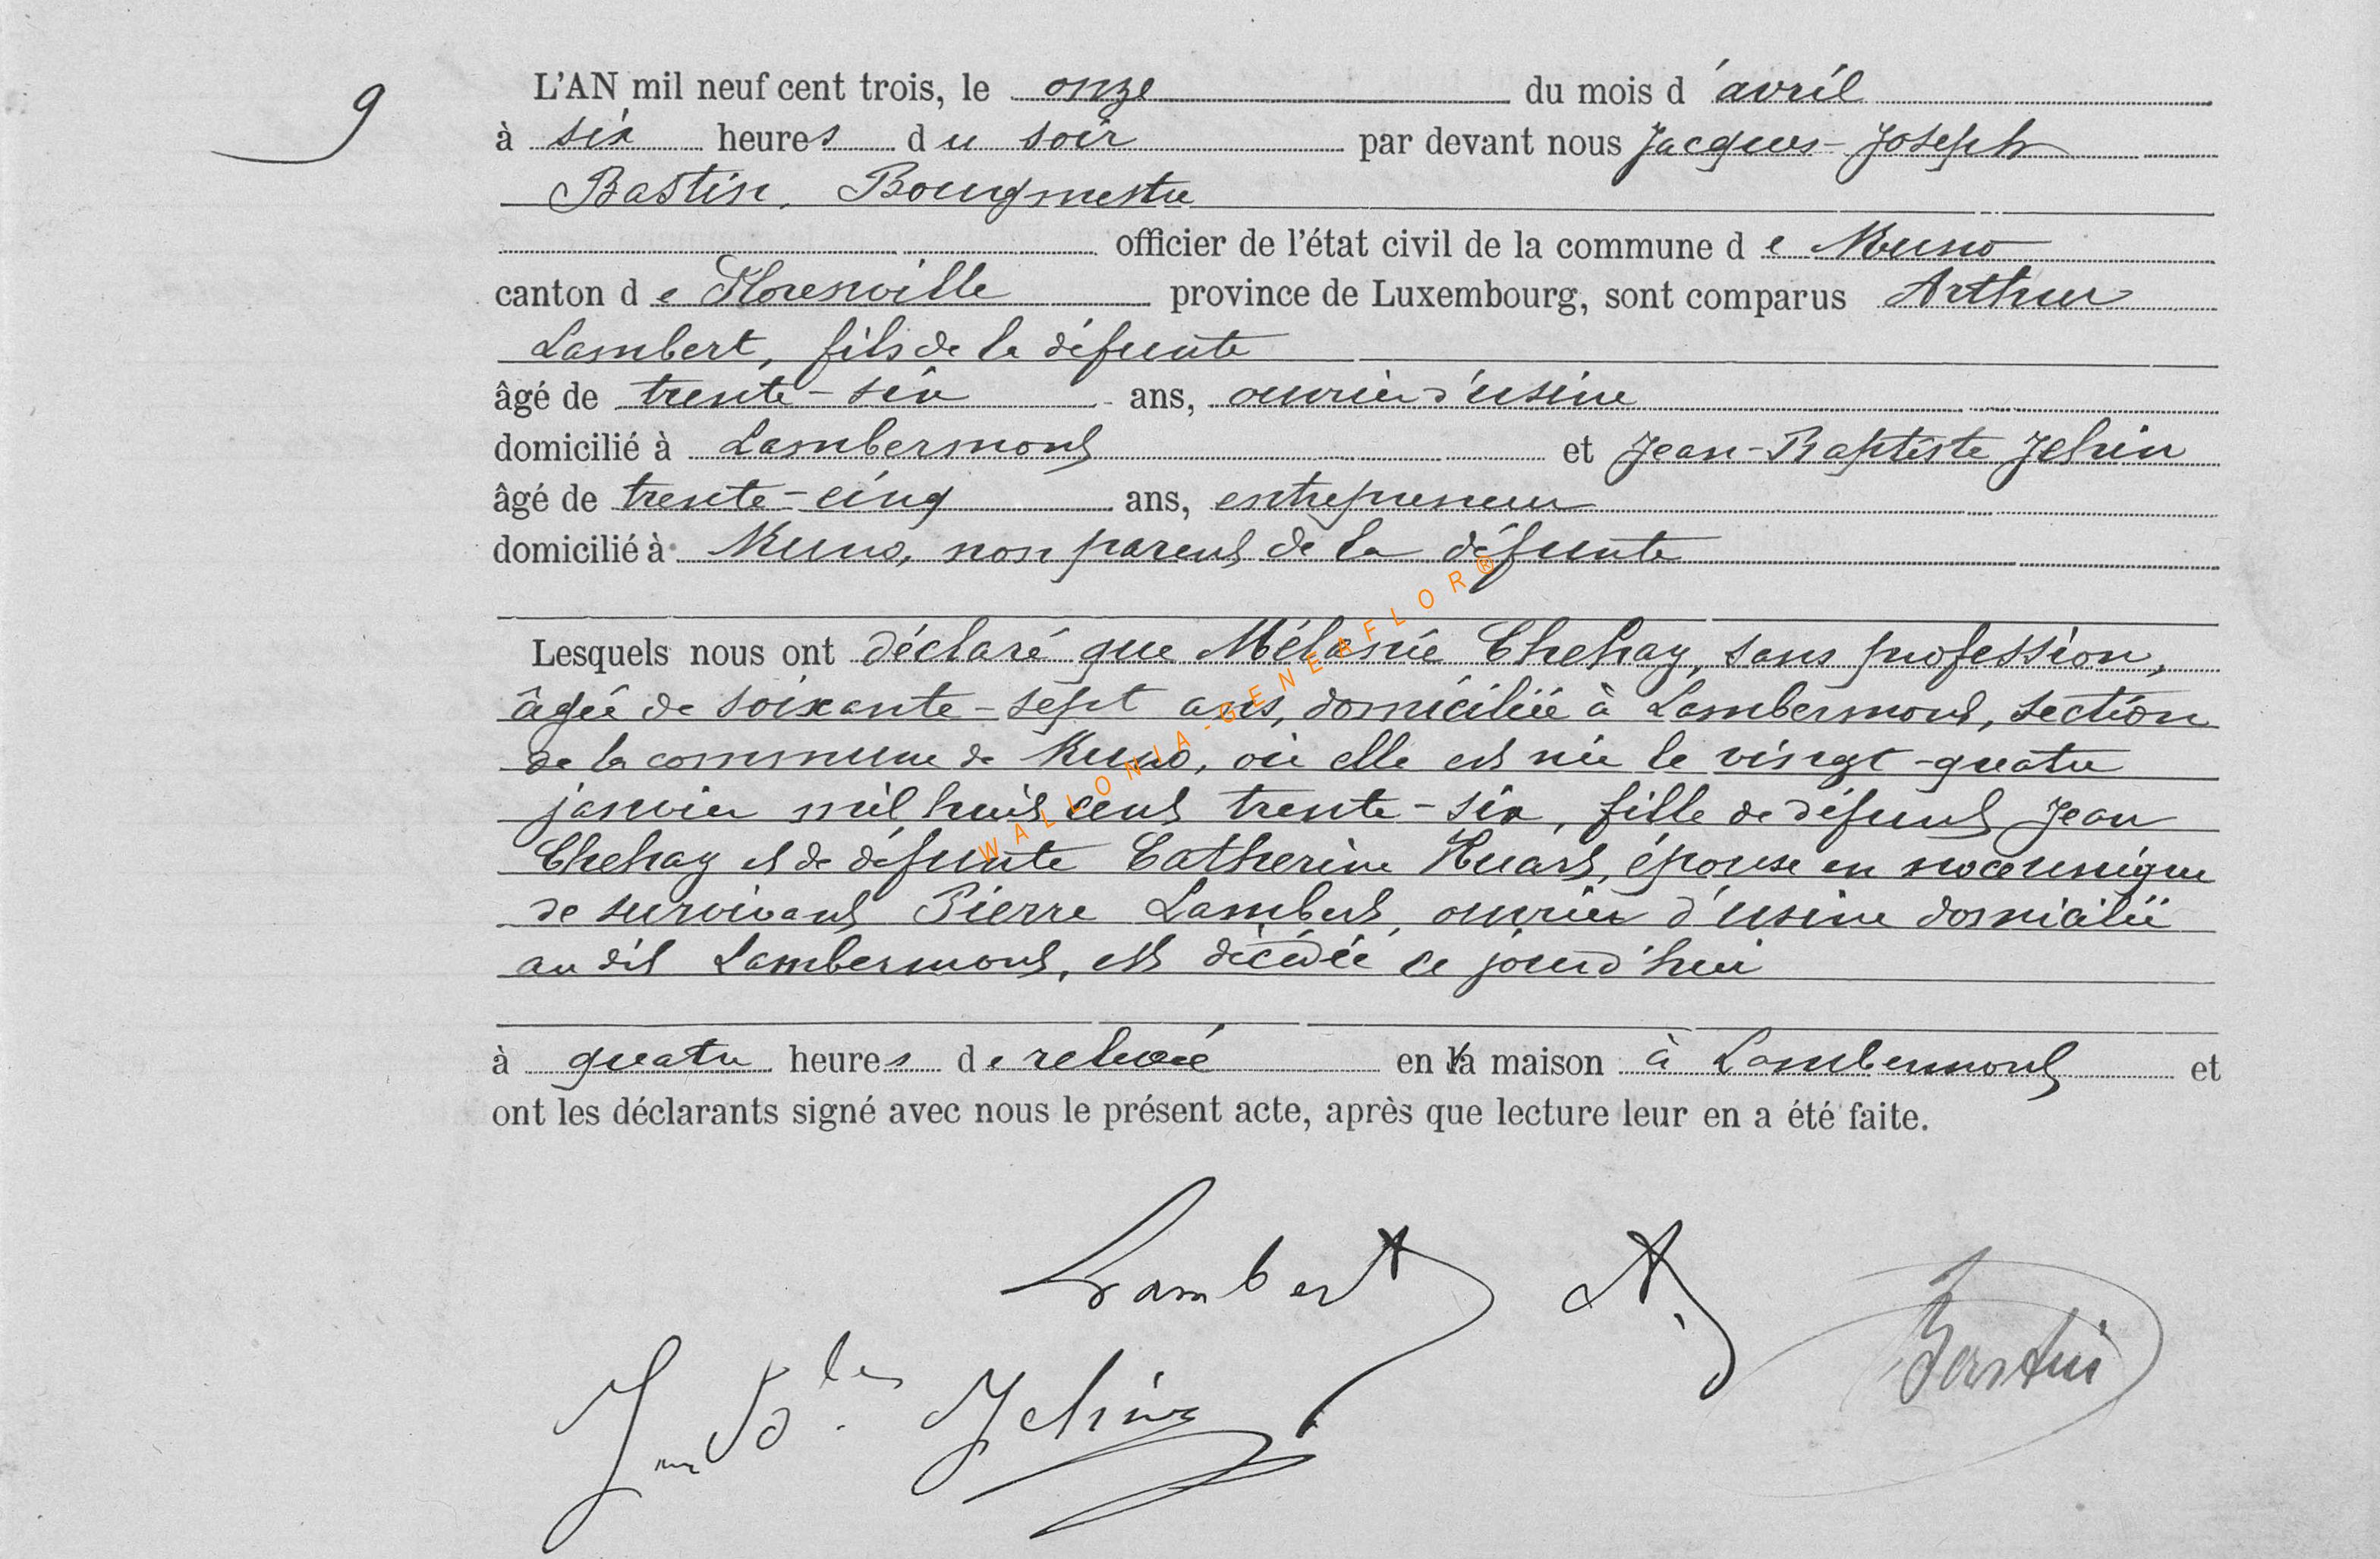 9
L'AN mil neuf cent trois, le onze du mois d'avril
à six heures du soir par devant nous Jacques-Joseph
Bastin, Bourgmestre
officier de l'état civil de la commune de Muno
canton de Florenville province de Luxembourg, sont comparus Arthur
Lambert, fils de la défunte
âgé de trente-six ans, ouvrier d'usine
domicilié à Lambermont et Jean-Baptiste Jehin
âgé de trente-cinq ans, entrepreneur
domicilié à Muno, non parent de la défunte
Lesquels nous ont déclaré que Mélanie Chehay, sans profession,
âgée de soixante-sept ans, domiciliée à Lambermont, section
de la commune de Muno, où elle est née le vingt-quatre
janvier mil huit cent trente-six, fille de défunt Jean
Chehay et de défunte Catherine Huart, épouse en noce unique
de survivant Pierre Lambert, ouvrier d'usine domicilié
au dit Lambermont, est décédée ce jourd'hui
à quatre heures de relevée en la maison à Lambermont et
ont les déclarants signé avec nous le présent acte, après que lecture leur en a été faite.
Lambert A.
Bastin
Jn Bte Jehin
WALLONIA-GENEAFLOR®